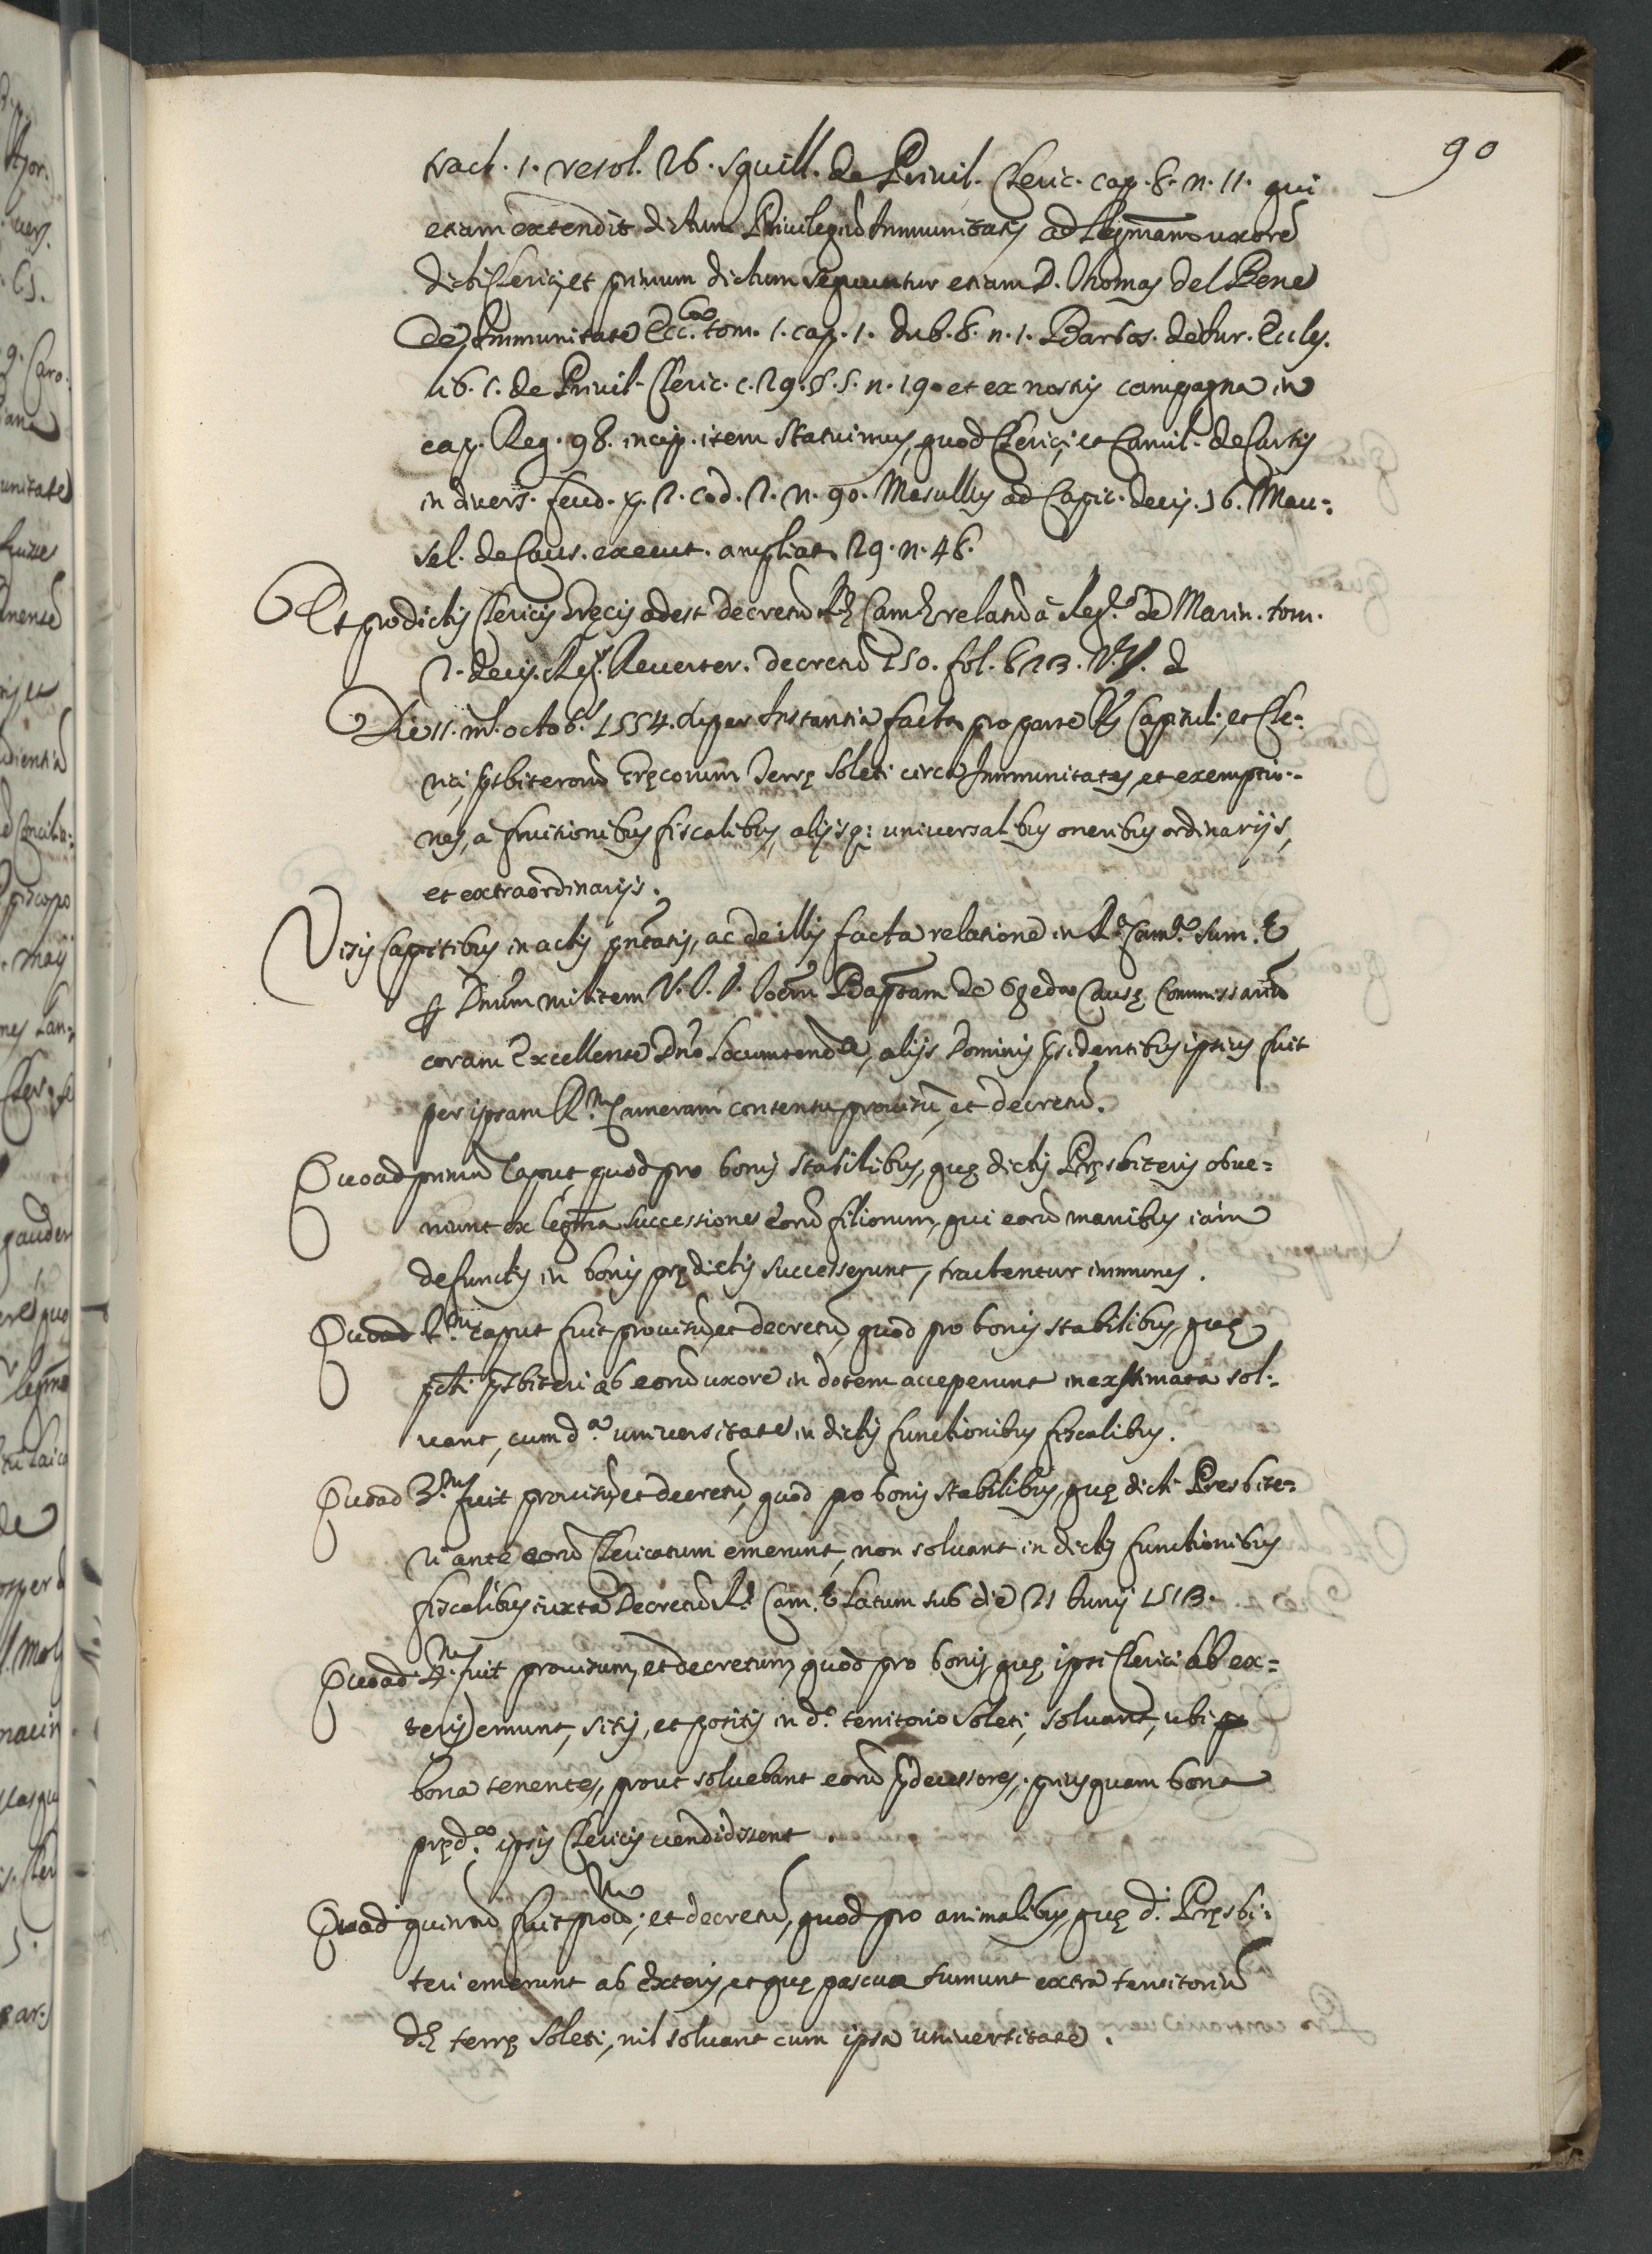 90
tract. 1. resol. 26. Squill. de Privil. Cleric. cap. 8. n. 11. qui
etiam extendit dictum Privilegiũ Immunitatis ad legmam uxorẽ
dicti Clerici, et primum dictum sequuntur etiam D. Thomas del Bene
de Immunitate Ecc.ca tom. 1. cap. 1. dub. 8. n. 1. Barbos. de Iur. Eccles.
lib. 1. de Privil. Cleric. c. 29. §. 5. n. 19. et ex nostris campagna in
cap. Reg. 98. incip. item statuimus, quod Clerici, et Camil. de Curtis
in divers. feud. p. 2. cod. 2. n. 90. Masullus ad Capic. decis. 16. Mau-
sel. de Caus. execut. ampliat. 29. n. 48.
Et pro dictis Clericis Gręcis adest decretũ Rę Camę relatũ à Reg.e de Marin. tom.
2. decis. Reg. Reverter. decretũ 250. fol. 623. V. J.
Die 11. m. octob. 1554. super Instantia facta pro parte Capitul. et Cle-
rici, psbiterorũ Gręcorum Terrę Soleti circa Immunitates, et exemptio-
nes, à fruitionibus fiscalibus, alijsq; universalibus oneribus ordinarijs,
et extraordinarijs.
Visis Capitibus in actis pñtatis, ac de illis facta relatione in R. Cam. Sum.
p Dñum militem V. J. D. Ioem Baptam de Causę Commissariũ
coram Excellente Dño Locumtenẽ, alijs Dominis psidentibus ipsius fuit
per ipsam R.m Cameram consensu provisũ, et decretũ.
Quoad primũ Caput, quod pro bonis stabilibus, quę dictis Pręsbiteris obve-
niunt ex legma successione eorũ filiorum, qui eorũ manibus iam
defunctis in bonis prędictis successerunt, tractentur immunes.
Quoad 2.m caput fuit provisũ, et decretũ, quod pro bonis stabilibus, quę
pcti psbiteri ab eorũ uxore in dotem acceperunt inexstimata sol-
vant, cum d.a universitate in dictis functionibus fiscalibus.
Quoad 3.m fuit provisũ, et decretũ, quod pro bonis stabilibus, quę dicti Presbite-
ri ante eorũ Clericatum emerunt, non solvant in dictis functionibus
fiscalibus iuxta Decretũ R. Cam. Latum sub die 21 Iunij 1513.
Quoad 4.m fuit provisum, et decretum, quod pro bonis, quę ipsi Clerici ab ex-
teris emunt, sitis, et positis in d.o territorio Soleti, solvant, ubi
bona tenentes, prout solvebant eorũ pdecessores, priusquam bona
pręd.a ipsis Clericis vendidissent.
Quoad quintũ fuit provm; et decretũ, quod pro animalibus, quę d. Pręsbi-
teri emerunt ab Exteris, et quę pascua sumunt extra territoriũ
d.ę terrę Soleti, nil solvant cum ipsa universitate.